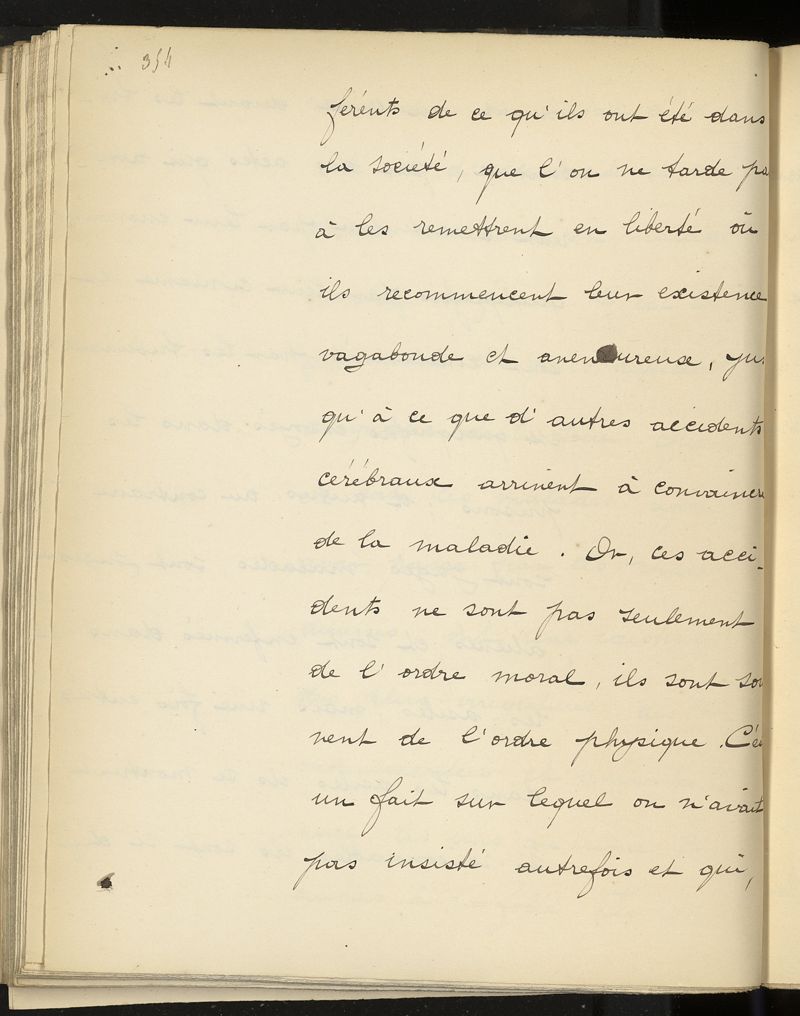 354
férents de ce qu'ils ont été dans
la société, que l'on ne tarde pa
à les remettrent en liberté où
ils recommencent leur existence
vagabonde et aventureuse, jus
qu'à ce que d'autres accidents
cérébraux arrivent à convaincre
de la maladie. Or, ces acci-
dents ne sont pas seulement
de l'ordre moral, ils sont sou
vent de l'ordre physique. C'es
un fait sur lequel on n'avait
pas insisté autrefois et qui,